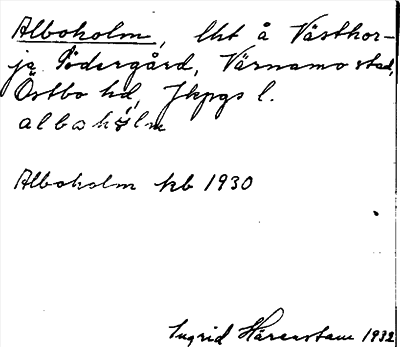 Alboholm, lht å Västhor-
ja Södergård, Värnamo stad,
Östbo hd, Jkpgs l.
albohólm
Alboholm kb 1930
Ingrid Härenstam 1932